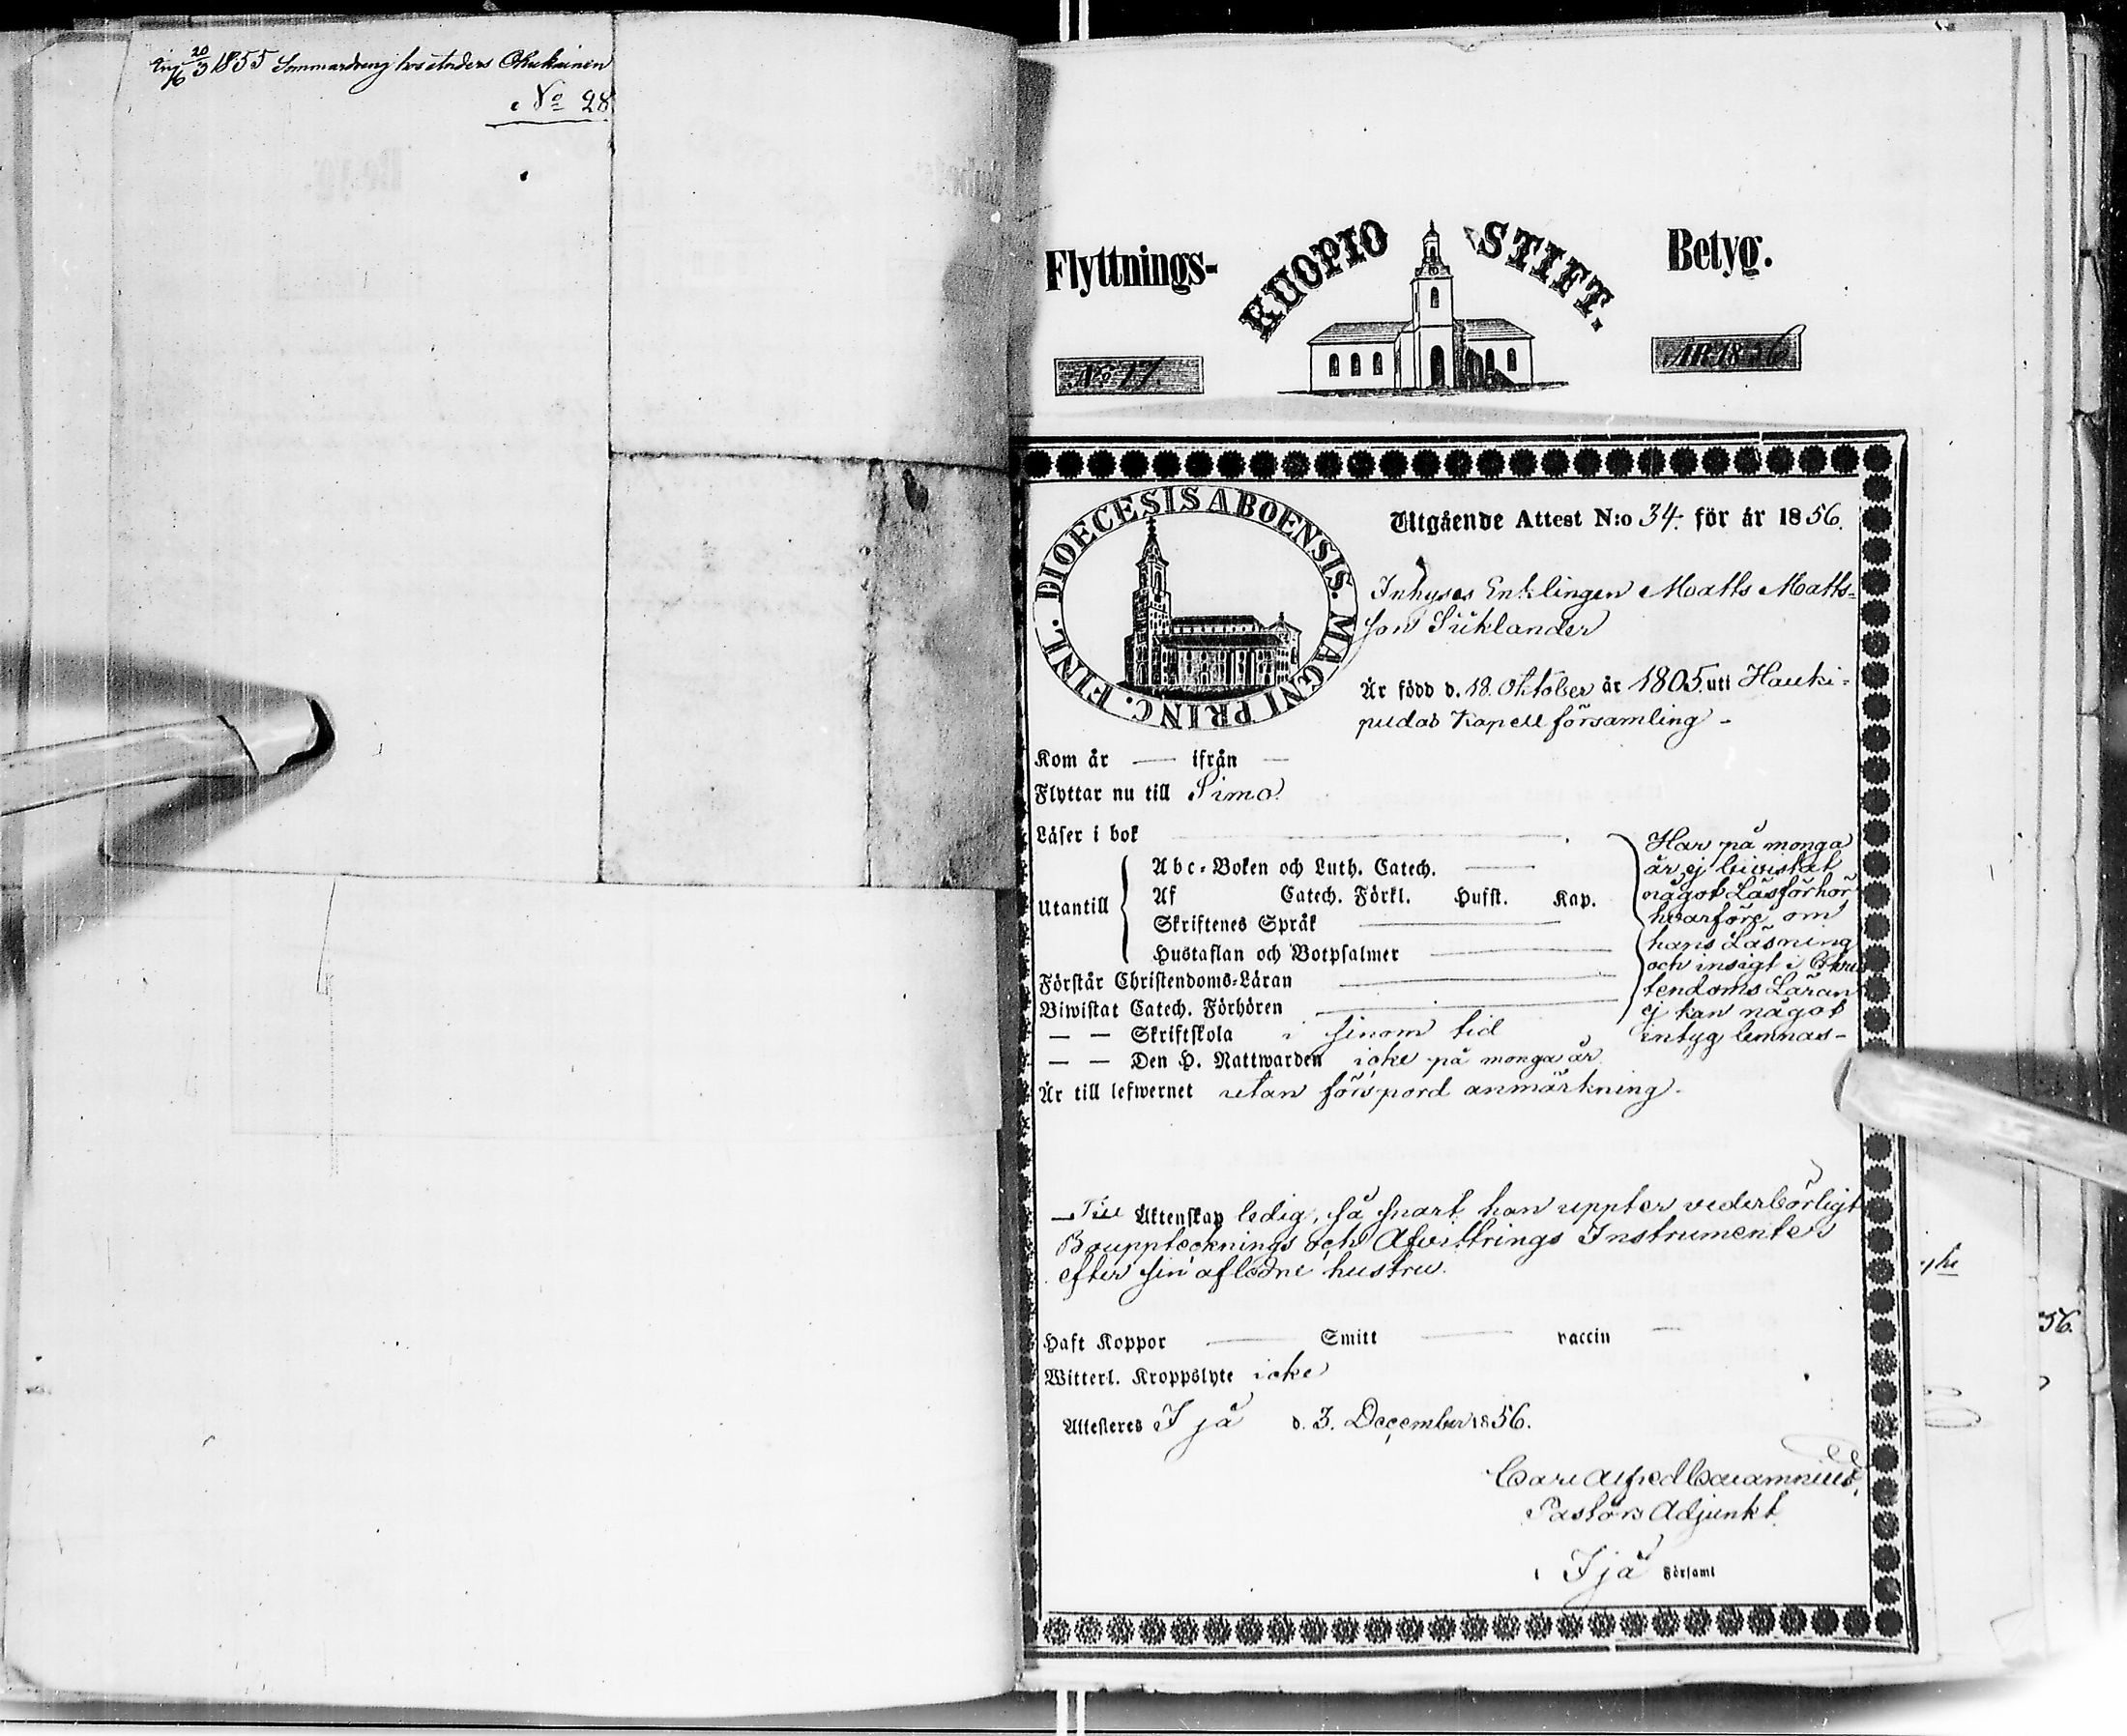 20/3 1855 Sommardreng hos Anders
No 28
Flyttnings-
KUOPIO STIFT.
Betyg.
No 17.
ÅR 1856
DIOECESIS ABOENSIS. MAGNI PRINC. FINL.
Utgående Attest N:o 34. för år 1856.
Inhyses Enklingen Matts Matts-
son Siiklander
Är född d. 18. Oktober år 1805. uti Hauki-
pudas Kapell församling -
Kom år — ifrån —
Flyttar nu till Simo.
Läser i bok
Utantill
Abc-Boken och Luth. Catech.
Af Catech. Förkl. Hufst. Kap.
Skriftenes Språk
Hustaflan och Botpsalmer
Förstår Christendoms-Läran
Biwistat Catech. Förhören
— — Skriftskola i sinom tid
— — Den H. Nattwarden icke på monga år
Har på monga
år ej bivistat
något Läsförhör,
hvarföre om
hans Läsning
och insigt i Chris
tendoms Läran
ej kan något
intyg lemnas-
Är till lefwernet utan förspord anmärkning.
Till Äktenskap ledig, så snart han uppter vederbörligt
Boupptecknings och Afvittrings Instrumenter
efter sin aflidne hustru.
Haft Koppor — Smitt — vaccin —
Witterl. Kroppslyte icke
Attesteres Ijå d. 3. December 1856.
Carl Alfred
Pastors Adjunkt
i Ijå Församl
56.